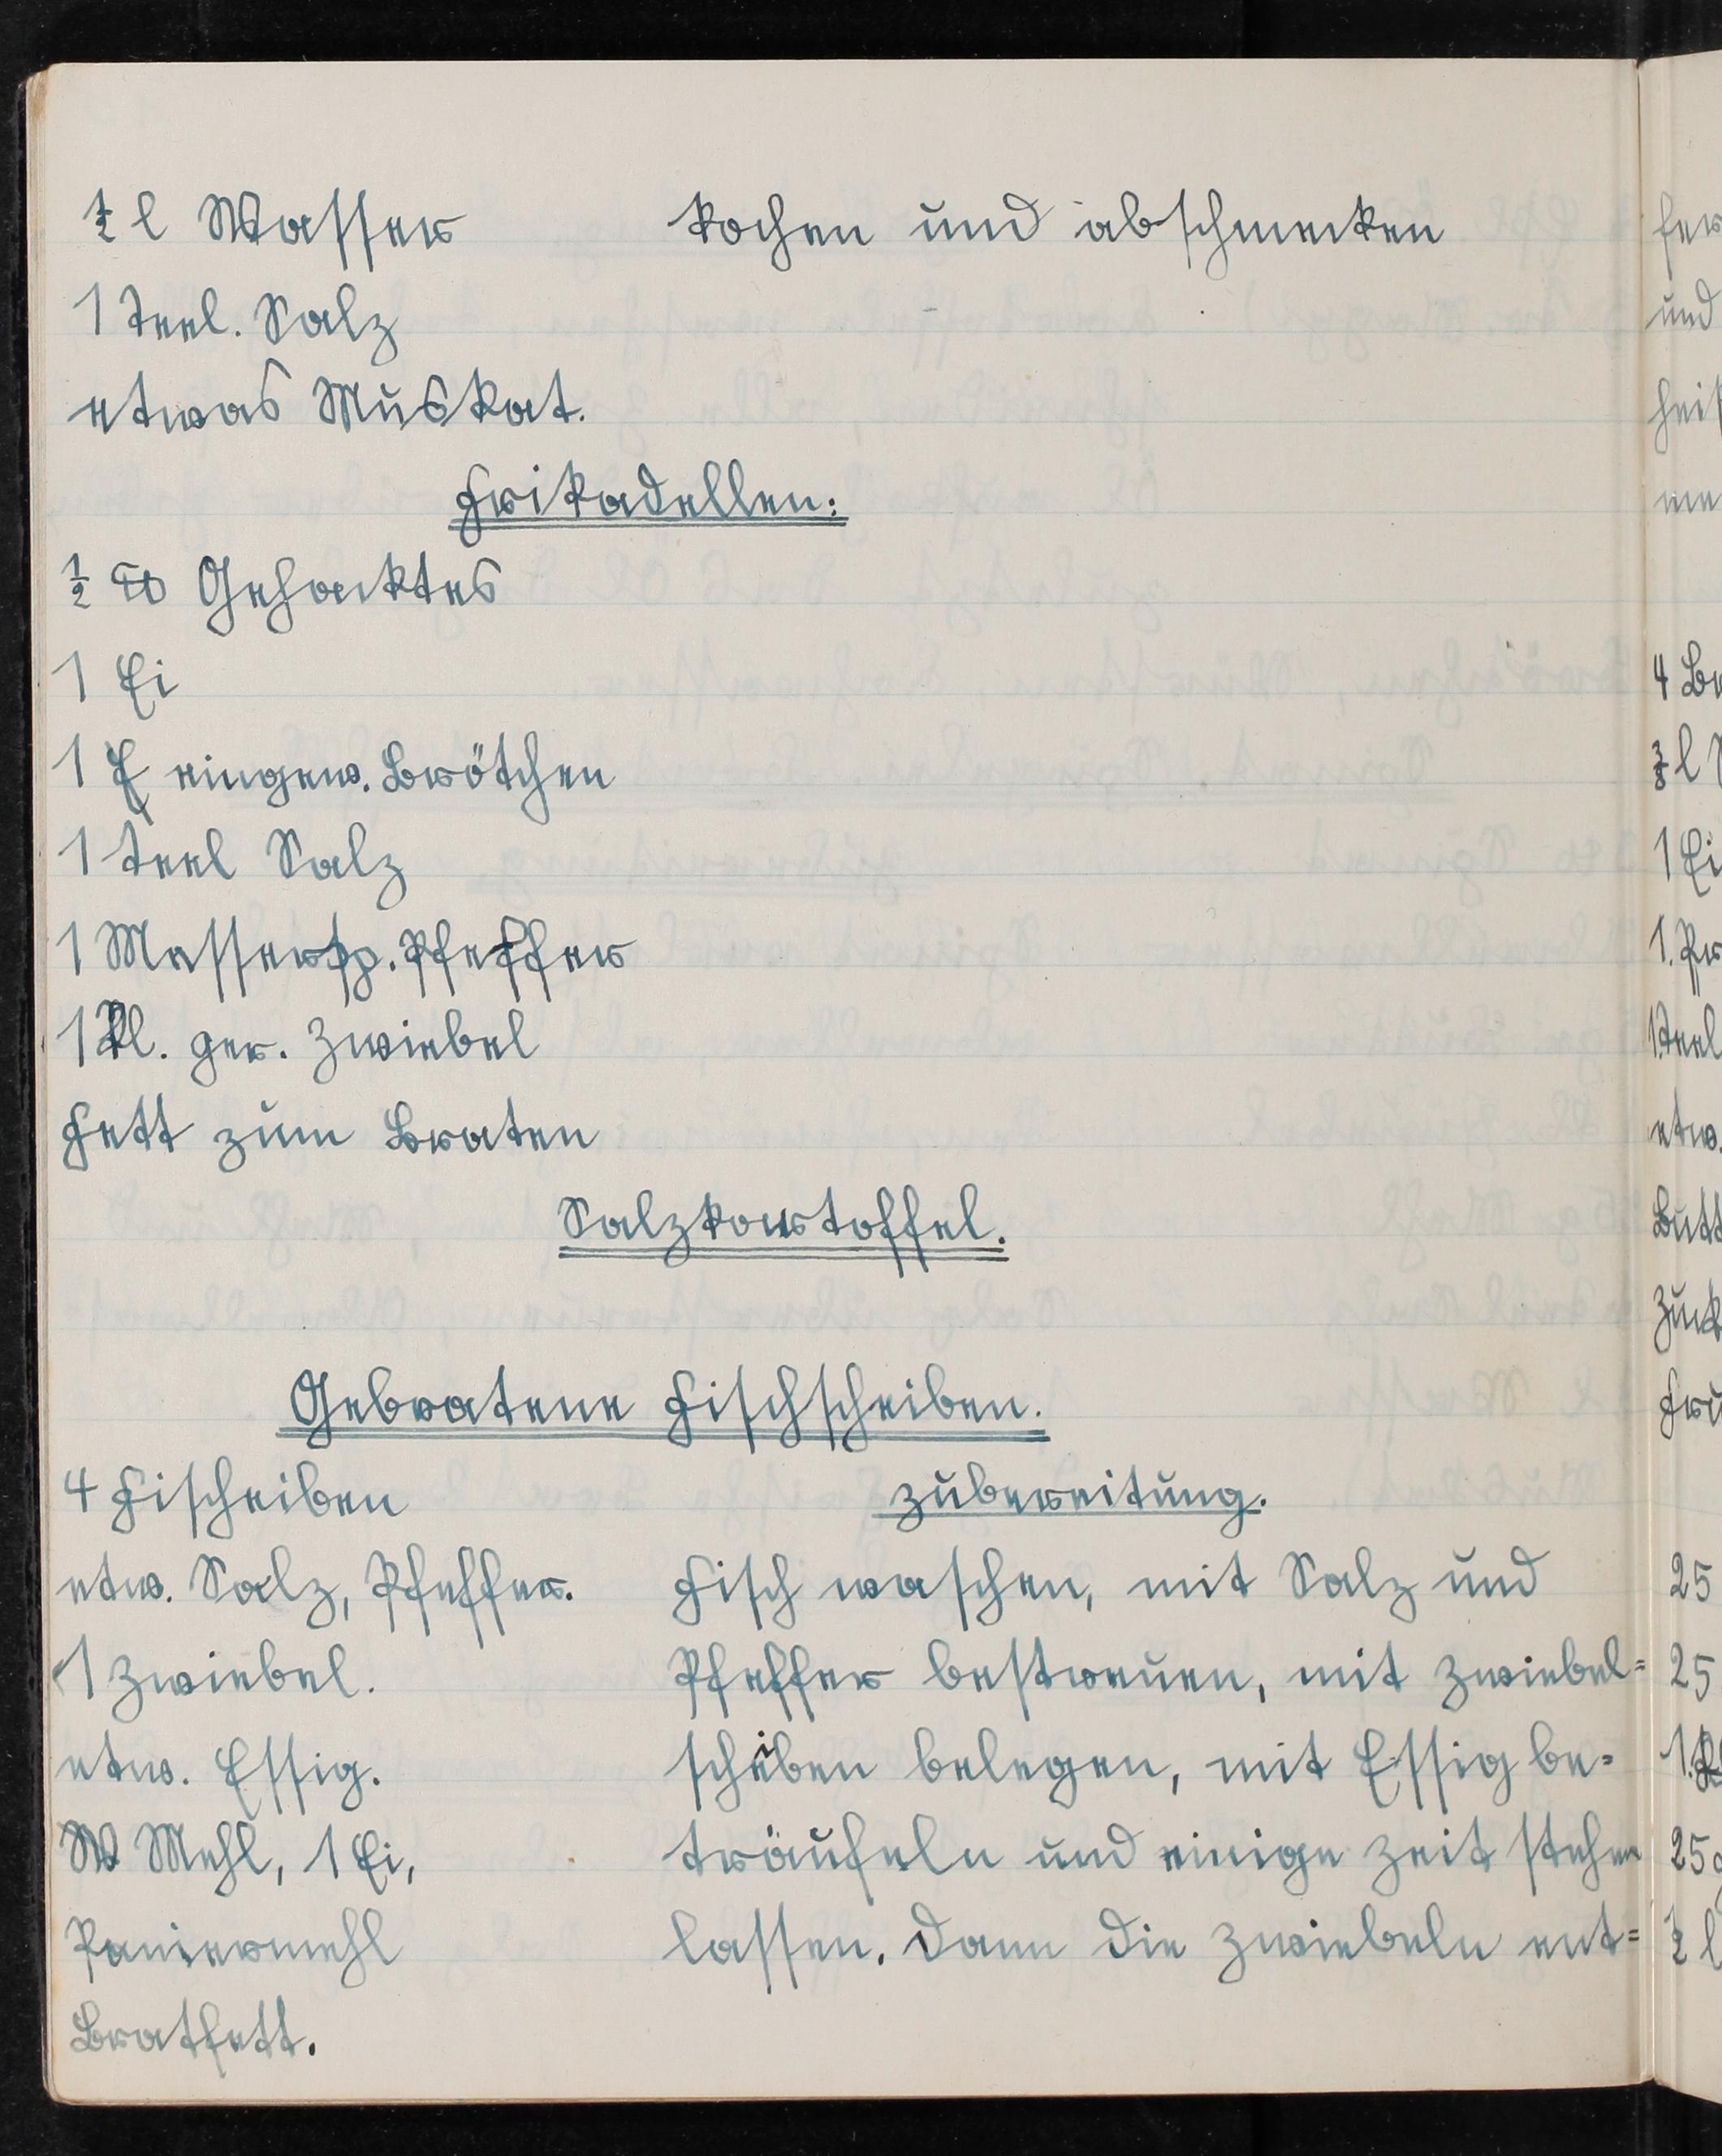 ½ l Wasser kochen und abschmecken
1 Teel. Salz
etwas Muskat.
Frikadellen:
½ ℔ Gehacktes
1 Ei
1 E eingew. Brötchen
1 Teel Salz
1 Messersp. Pfeffer
1 Kl. ger. Zwiebel
Fett zum Braten
Salzkartoffel.
Gebratene Fischscheiben.
4 Fischeiben Zubereitung.
etw. Salz, Pfeffer. Fisch waschen, mit Salz und
1 Zwiebel. Pfeffer bestreuen, mit Zwiebel=
etw. Essig. scheiben belegen, mit Essig be=
W Mehl, 1 Ei, träufeln und einige Zeit stehen
Paniermehl lassen. Dann die Zwiebeln ent=
Bratfett.
und
4
1 Ei
1 Teel
etw.
25
25
25
½ l